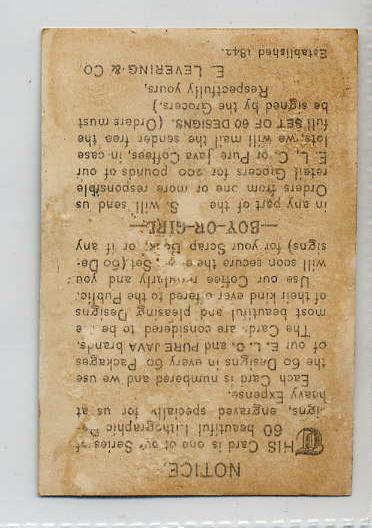 NOTICE.
THIS Card is one of Series of
60 beautiful Lithographic
signs, engraved specially for us at
heavy Expense.
Each Card is numbered and we use
the 60 Designs in every 60 Packages
of our E. L. C. and PURE JAVA brands.
The Cards are considered to be
most beautiful and pleasing Designs
of their kind ever offered to the Public.
Use our Coffee regularly and you
will soon secure the Set (60 De-
signs) for your Scrap or if any
—BOY-OR-GIRL—
in any part of the S. will send us
Orders from one or more responsible
retail Grocers for 200 pounds of our
E. L. C. or Pure Java Coffees, in case
lots, we will mail the sender free the
full SET OF 60 DESIGNS. (Orders must
be signed by the Grocers).
Respectfully yours,
E. LEVERING & CO.
Established 1842.